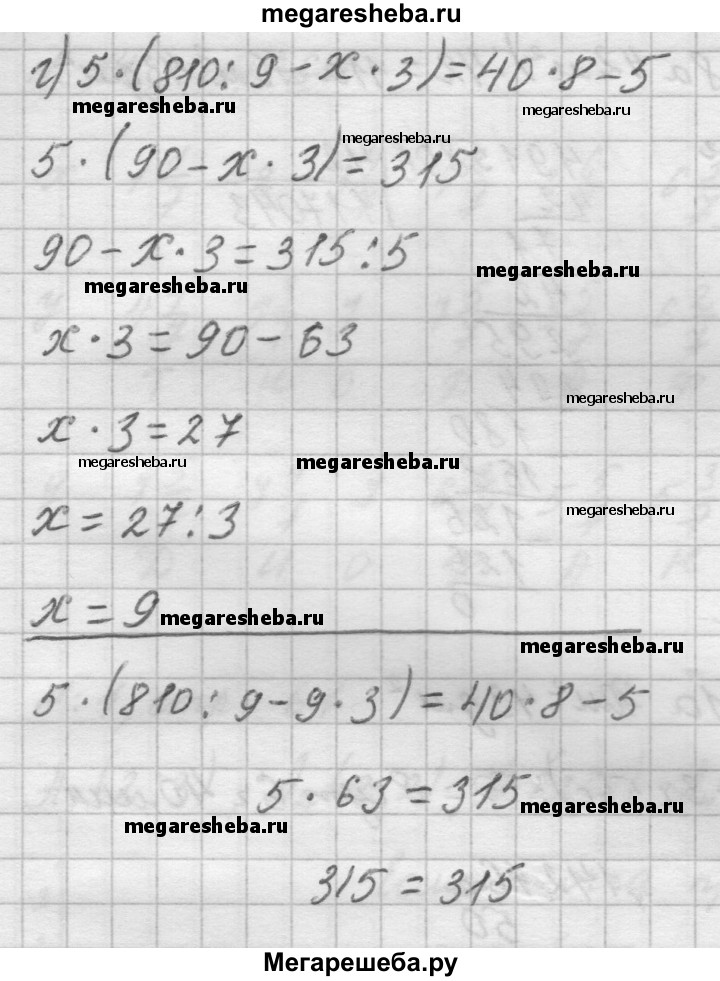 megaresheba.ru
г) 5·(810:9-x·3)=40·8-5
megaresheba.ru
megaresheba.ru
megaresheba.ru
5·(90-x·3)=315
90-x·3=315:5
megaresheba.ru
megaresheba.ru
x·3=90-63
megaresheba.ru
x·3=27
megaresheba.ru
megaresheba.ru
x=27:3
megaresheba.ru
x=9
megaresheba.ru
megaresheba.ru
5·(810:9-9·3)=40·8-5
5·63=315
megaresheba.ru
megaresheba.ru
315=315
Мегарешеба.ру